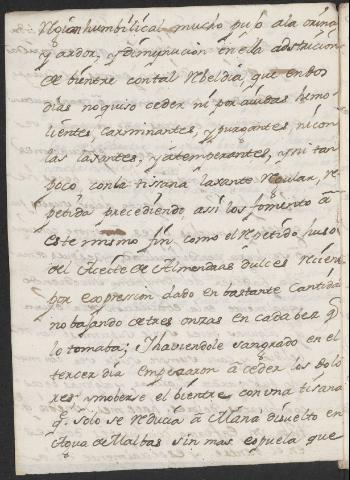 Region humbilical mucho pujo a la orina
y ardor, y diminucion en ella adstriccion
de bientre con tal Rebeldia, que en dos
dias no quiso ceder ni por aiudas hemo-
lientes, carminantes, y purgantes, ni con
las laxantes, y atemperantes, y ni tan
poco con la tisana laxante Regular, re-
petida precediendo asi los fomento â
este mismo fin como el repetido huso
del Aceite de Almendras dulces recien
por expresion dado en bastante cantidad
no bajando de tres onzas en cada bes q.
lo tomaba; I haviendole sangrado en el
tercer dia empezaron â ceder los dolo
res smoberse el bientre con una tisana
q. solo se reducia â Maná disuelto en
Agua de Malbas sin mas espuela que